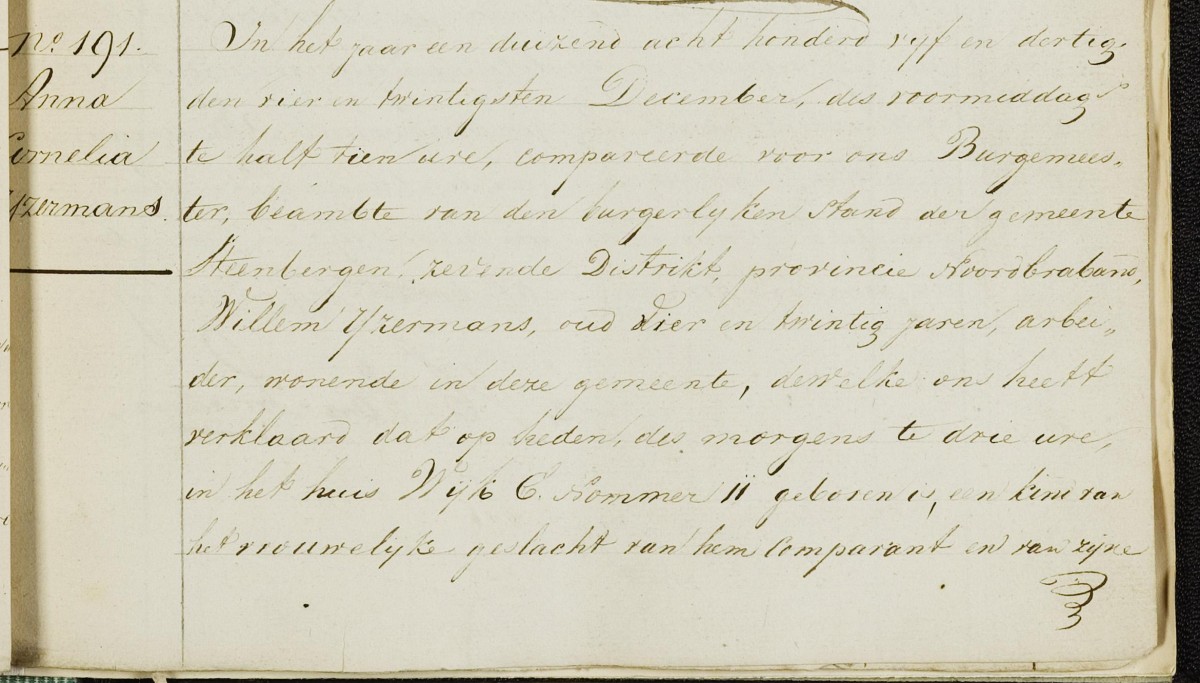 No. 191.
Anna
Cornelia
Yzermans.
In het jaar een duizend acht honderd vyf en dertig
den vier en twintigsten December, des voormiddags
te half tien ure, compareerde voor ons Burgemees-
ter, beämbte van den burgerlyken stand der gemeente
Steenbergen, zevende Distrikt, provincie Noordbraband,
Willem Yzermans, oud Vier en twintig jaren, arbei-
der, wonende in deze gemeente, dewelke ons heeft
verklaard dat op heden, des morgens te drie ure,
in het huis Wyk C. Nommer 11 geboren is, een kind van
het vrouwelyke geslacht van hem Comparant en van zyne